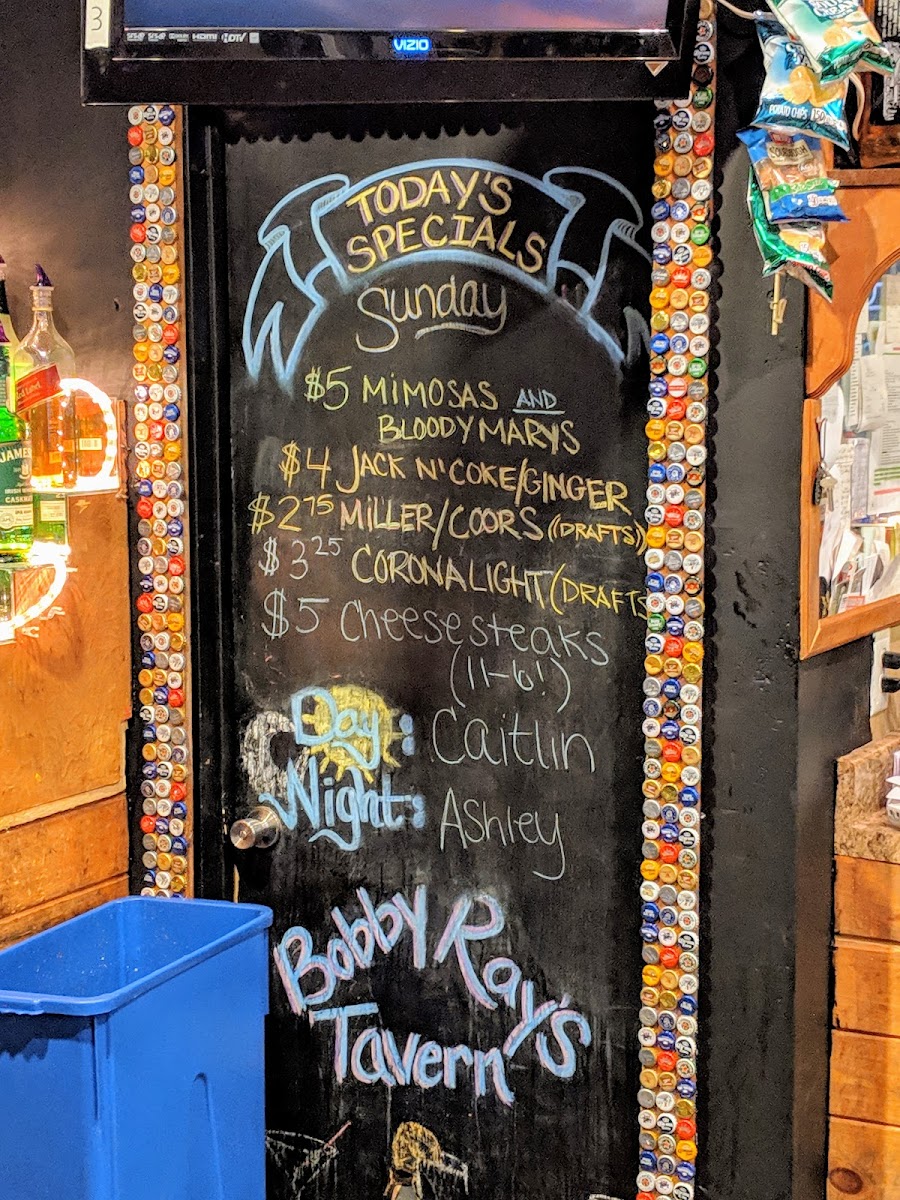 3
HDMI HDTV
VIZIO
TODAY'S
SPECIALS
Sunday
$5 MIMOSAS AND
BLOODY MARYS
$4 JACK N' COKE/GINGER
$2 75 MILLER/COORS ((DRAFTS))
$3 25 CORONA LIGHT (DRAFTS
$5 Cheesesteaks
(11-6!)
Day: Caitlin
Night: Ashley
Bobby Ray's
Tavern
POTATO CHIPS
Red Label